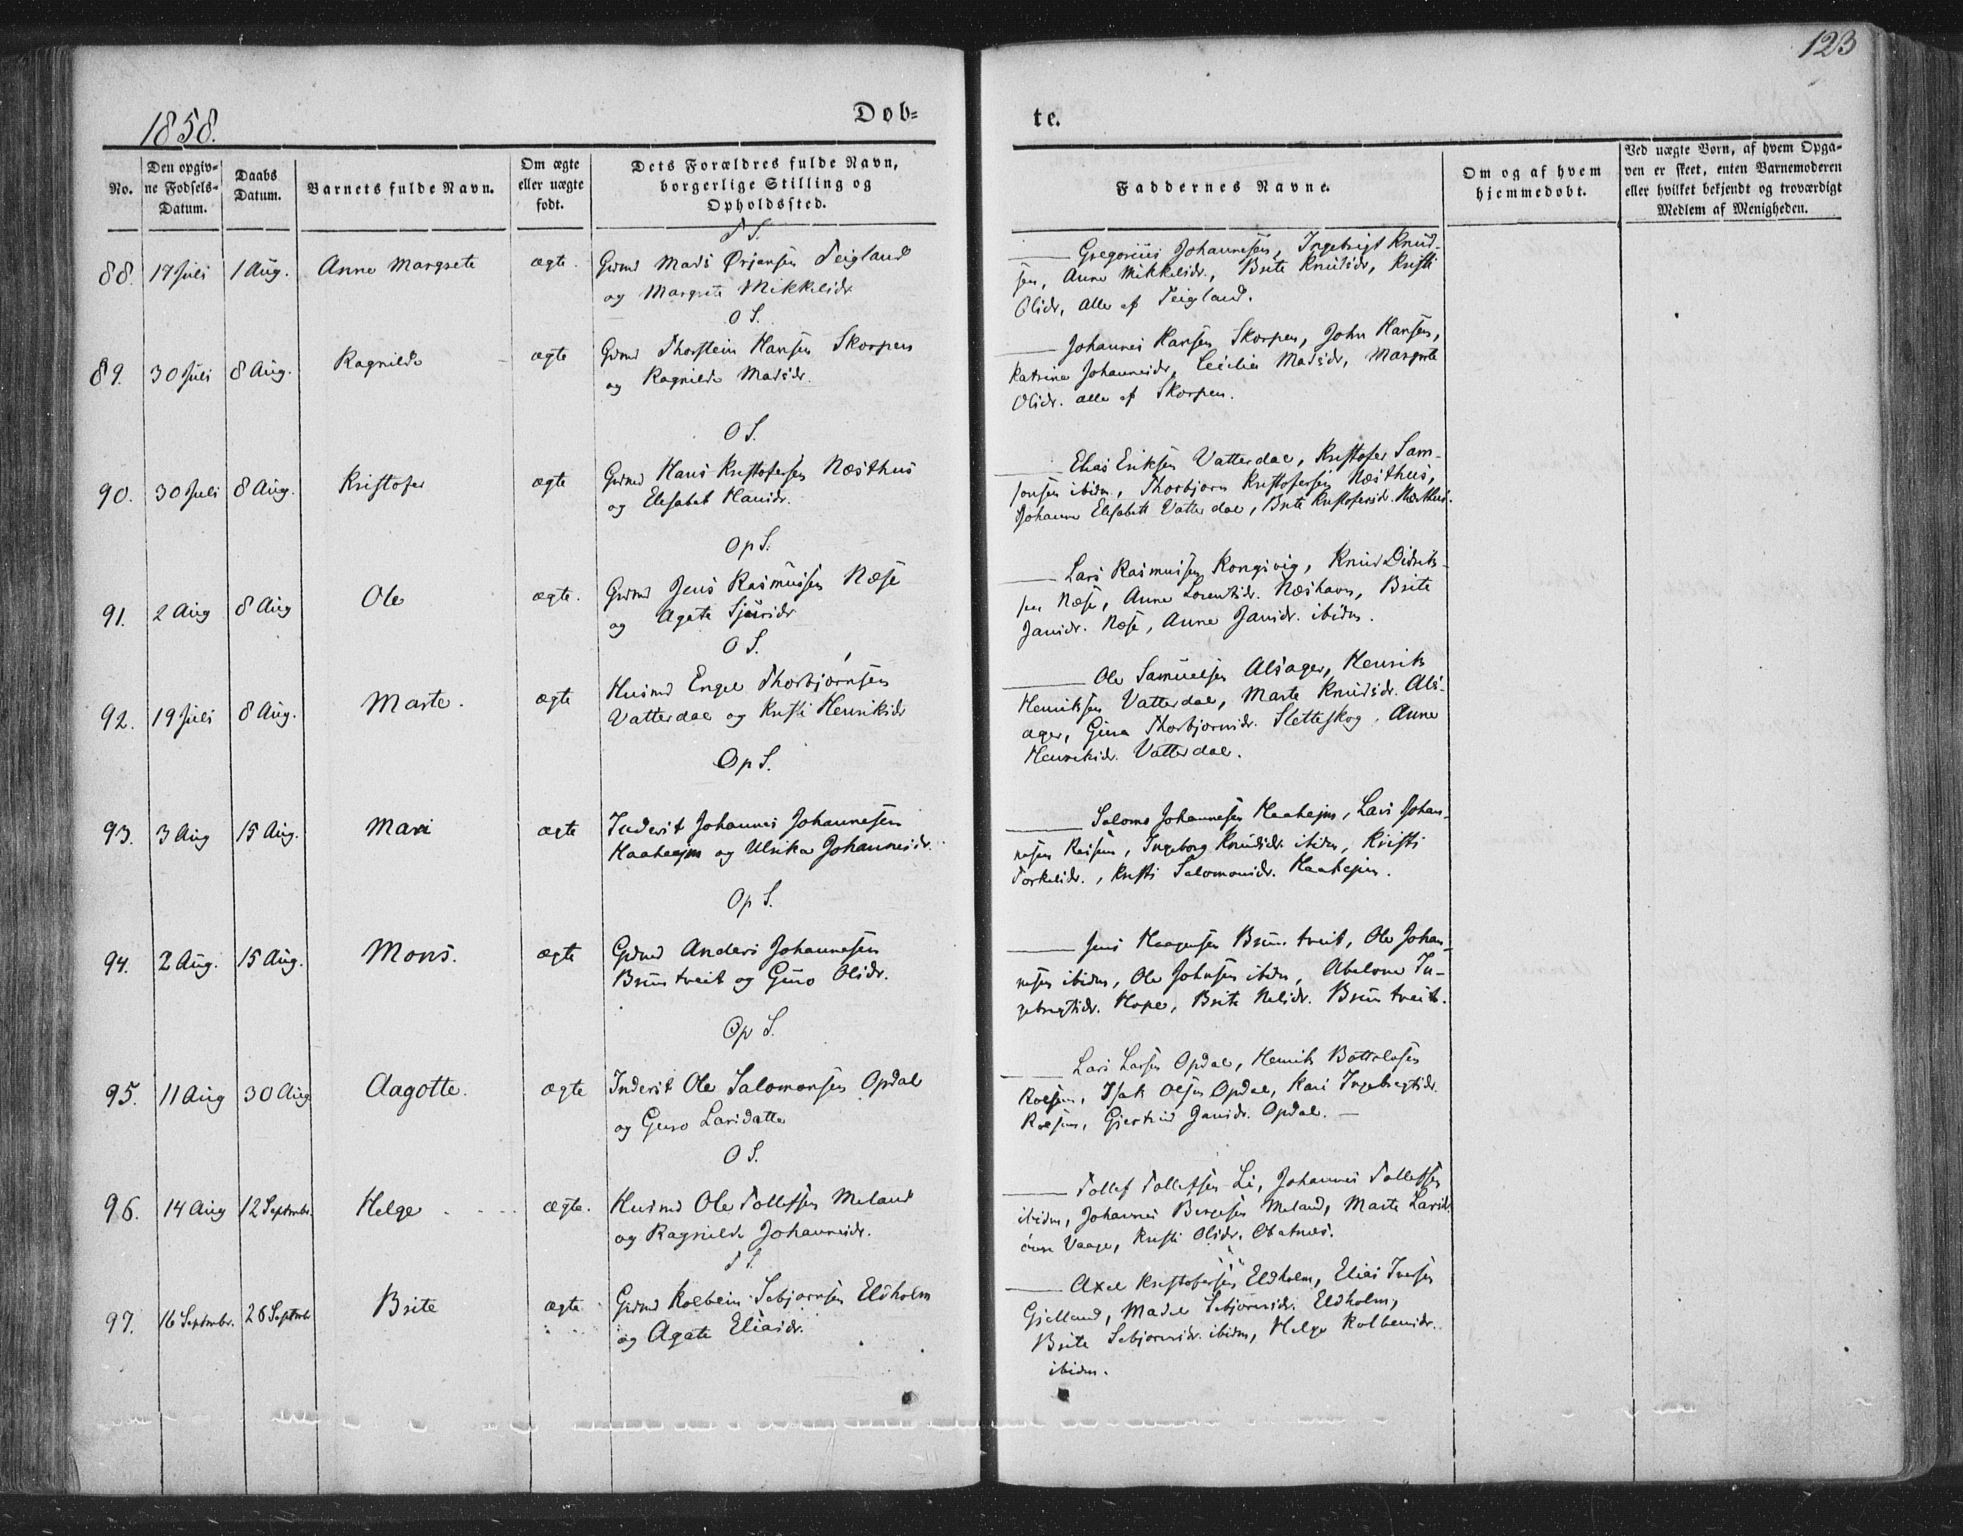 123
1858.
Døb=
te.
No.
Den opgiv-
ne Fødsels-
Datum.
Daabs
Datum.
Barnets fulde Navn.
Om ægte
eller uægte
født.
Dets Forældres fulde Navn,
borgerlige Stilling og
Opholdssted.
Faddernes Navne.
Om og af hvem
hjemmedøbt.
Ved uægte Børn, af hvem Opga-
ven er skeet, enten Barnemoderen
eller hvilket bekjendt og troværdigt
Medlem af Menigheden.
T S.
88. 17 Juli 1 Aug. Anne Margrete ægte. Grdmd Mads Ørjansen Teigland
og Margrete Mikkelsdr.
Gregorius Johannesen, Ingebrigt Knud-
sen, Anne Mikkelsdr., Brite Knudsdr, Kristi
Olsdr, alle af Teigland.
O S.
89. 30 Juli 8 Aug. Ragnilde ægte Grdmd Thorstein Hansen Skorpen
og Ragnilde Madsdr.
Johannes Hansen Skorpen, John Hansen,
Katrine Johannesdr, Cecilia Madsdr, Margrete
Olsdr. alle af Skorpen.
O S.
90. 30 Juli 8 Aug. Kristofer ægte Grdmd Hans Kristofersen Næsthus
og Elisabet Hansdr.
Elias Eriksen Vatterdal, Kristofer Sam-
sonsen ibidm, Thorbjørn Kristofersen Næsthus,
Johanne Elisabeth Vatterdal, Brite Kristofersdr. Næsthus.
Op S.
91. 2 Aug 8 Aug Ole ægte. Grdmd Jens Rasmussen Næse
og Agate Sjursdr
Lars Rasmussen Kongsvig, Knud Didrik-
sen Næse, Anne Lorentsdr. Næshavn, Brite
Jansdr. Næse, Anne Jansdr. ibidm.
O S.
92. 19 Juli 8 Aug. Marte. ægte Husmd Engel Thorbjørnsen
Vatterdal og Kristi Henriksdr
Ole Samuelsen Alsager, Henrik
Henriksen Vatterdal, Marte Knudsdr. Als-
ager, Gina Thorbjørnsdr. Sletteskog, Anne
Henriksdr. Vatterdal.
Op S.
93. 3 Aug 15 Aug. Mari ægte Inderst Johannes Johannesen
Haahejm og Ulrika Johannesdr.
Salomo Johannesen Haahejm, Lars Johan-
nesen Reisen, Ingeborg Knudsdr. ibidm, Kristi
Torkelsdr., Kristi Salomonsdr. Haahejm.
Op S.
94. 2 Aug. 15 Aug. Mons. ægte Grdmd Anders Johannesen
Bruntveit og Guro Olsdr.
Jens Haagensen Bruntveit, Ole Johan-
nesen ibidm, Ole Johnsen ibidm, Abelone In-
gebrigtsdr. Hope, Brite Nelsdr. Bruntveit.
Op S.
95. 11 Aug 30 Aug Aagotte. ægte Inderst Ole Salomonsen Opdal
og Guro Larsdatter
Lars Larsen Opdal, Henrik Bottolfsen
Isak Olsen Opdal, Kari Ingebrigtsdr.
Gjertrud Jansdr. Opdal.
O S.
96. 14 Aug 12 Septmbr. Helge ægte. Husmd Ole Tollefsen Meland
og Ragnilde Johannesdr.
Tollef Tollefsen Li, Johannes Tollefsen
ibidm, Johannes Børgesen Meland, Marte Larsdr
øvre Vaage, Kristi Olsdr.
T S.
97. 16 Septmbr. 26 Septmbr Brite ægte Grdmd Kolbein Sebjørnsen Eldholm
og Agate Eliasdr.
Axel Kristofersen Eldholm, Elias Iversen
Gjelland, Madel Sebjørnsdr. Eldholm,
Brite Sebjørnsdr. ibidm, Helge Kolbensdr.
ibidm.